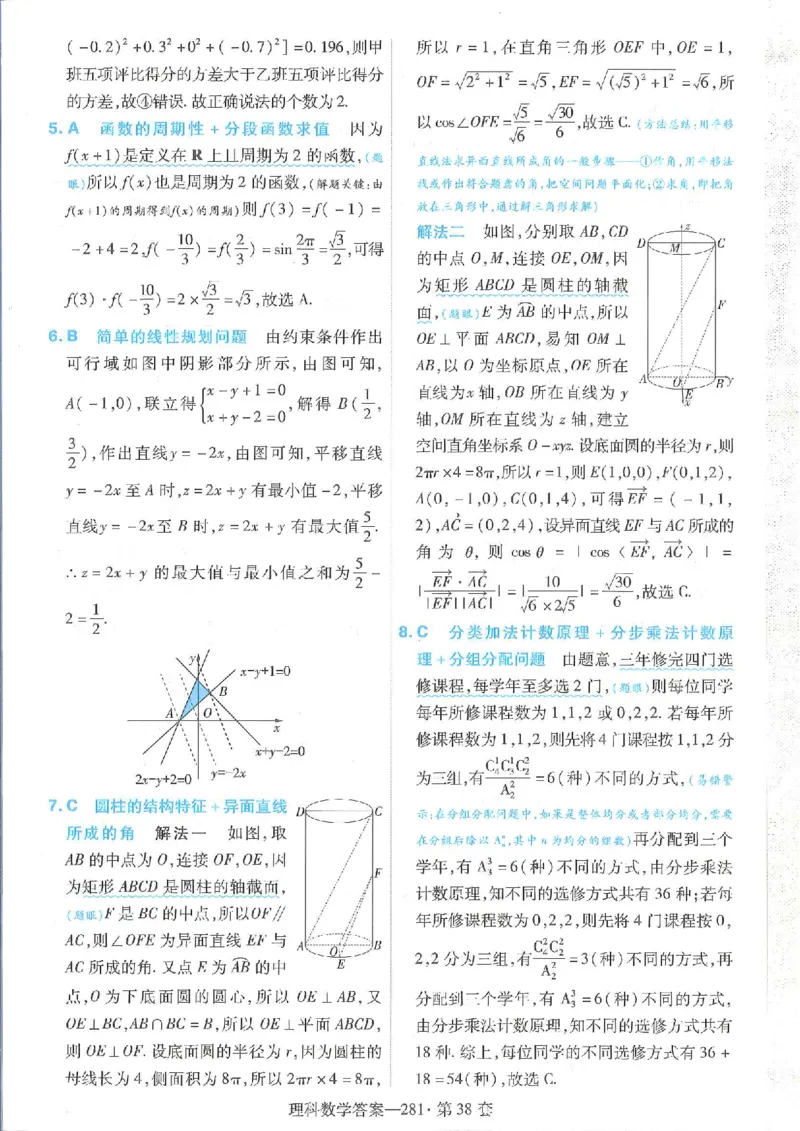 (-0.2)²+0.3²+0²+(-0.7)²]=0.196,则甲
班五项评比得分的方差大于乙班五项评比得分
的方差,故④错误. 故正确说法的个数为2.
5. A 函数的周期性+分段函数求值 因为
f(x+1)是定义在 R 上且周期为 2 的函数,(题
眼)所以f(x)也是周期为 2 的函数,(解题关键:由
f(x+1)的周期得到f(x)的周期)则 f(3)=f(-1)=
-2+4=2,f(-10/3)=f(2/3)=sin 2π/3=√3/2,可得
f(3)·f(-10/3)=2×√3/2=√3,故选 A.
6. B 简单的线性规划问题 由约束条件作出
可行域如图中阴影部分所示,由图可知,
A(-1,0),联立得{x-y+1=0 x+y-2=0,解得 B(1/2,
3/2),作出直线y=-2x,由图可知,平移直线
y=-2x 至 A 时,z=2x+y 有最小值-2,平移
直线y=-2x至 B 时,z=2x+y 有最大值5/2.
∴z=2x+y 的最大值与最小值之和为5/2-
2=1/2.
y
x-y+1=0
B
A
O
x
x+y-2=0
2x-y+2=0
y=-2x
7. C 圆柱的结构特征+异面直线
所成的角 解法一 如图,取
AB 的中点为 O,连接 OF,OE,因
为矩形 ABCD 是圆柱的轴截面,
(题眼)F 是 BC 的中点,所以OF∥
AC,则∠OFE 为异面直线 EF 与
AC 所成的角. 又点 E 为AB⌒的中
D
C
F
A
O
B
E
点,O 为下底面圆的圆心,所以 OE⊥AB,又
OE⊥BC,AB∩BC=B,所以 OE⊥平面 ABCD,
则 OE⊥OF. 设底面圆的半径为 r,因为圆柱的
母线长为 4,侧面积为 8π,所以 2πr×4=8π,
所以 r=1,在直角三角形 OEF 中,OE=1,
OF=√(2²+1²)=√5,EF=√((√5)²+1²)=√6,所
以 cos∠OFE=√5/√6=√30/6,故选 C. (方法总结:用平移
直线法求异面直线所成角的一般步骤——①作角,用平移法
找或作出符合题意的角,把空间问题平面化;②求角,即把角
放在三角形中,通过解三角形求解)
解法二 如图,分别取 AB,CD
的中点 O,M,连接 OE,OM,因
为矩形 ABCD 是圆柱的轴截
面,(题眼)E 为AB⌒的中点,所以
OE⊥平面 ABCD,易知 OM⊥
AB,以 O 为坐标原点,OE 所在
直线为x 轴,OB 所在直线为 y
轴,OM 所在直线为 z 轴,建立
z
D
M
C
F
A
O
B
y
E
x
空间直角坐标系 O-xyz. 设底面圆的半径为 r,则
2πr×4=8π,所以 r=1,则 E(1,0,0),F(0,1,2),
A(0,-1,0),C(0,1,4),可得EF→=(-1,1,
2),AC→=(0,2,4),设异面直线 EF 与 AC 所成的
角为 θ,则 cos θ=|cos〈EF→,AC→〉|=
|EF→·AC→/|EF→||AC→||=|10/(√6×2√5)|=√30/6,故选 C.
8. C 分类加法计数原理+分步乘法计数原
理+分组分配问题 由题意,三年修完四门选
修课程,每学年至多选 2 门,(题眼)则每位同学
每年所修课程数为 1,1,2 或 0,2,2. 若每年所
修课程数为 1,1,2,则先将 4 门课程按 1,1,2 分
为三组,有C₄¹C₃¹C₂²/A₂²=6(种)不同的方式,(易错警
示:在分组分配问题中,如果是整体均分或者部分均分,需要
在分组后除以 Aₙⁿ,其中 n 为均分的组数)再分配到三个
学年,有 A₃³=6(种)不同的方式,由分步乘法
计数原理,知不同的选修方式共有 36 种;若每
年所修课程数为 0,2,2,则先将 4 门课程按 0,
2,2 分为三组,有C₄²C₂²/A₂²=3(种)不同的方式,再
分配到三个学年,有 A₃³=6(种)不同的方式,
由分步乘法计数原理,知不同的选修方式共有
18 种. 综上,每位同学的不同选修方式有 36+
18=54(种),故选 C.
理科数学答案—281·第 38 套